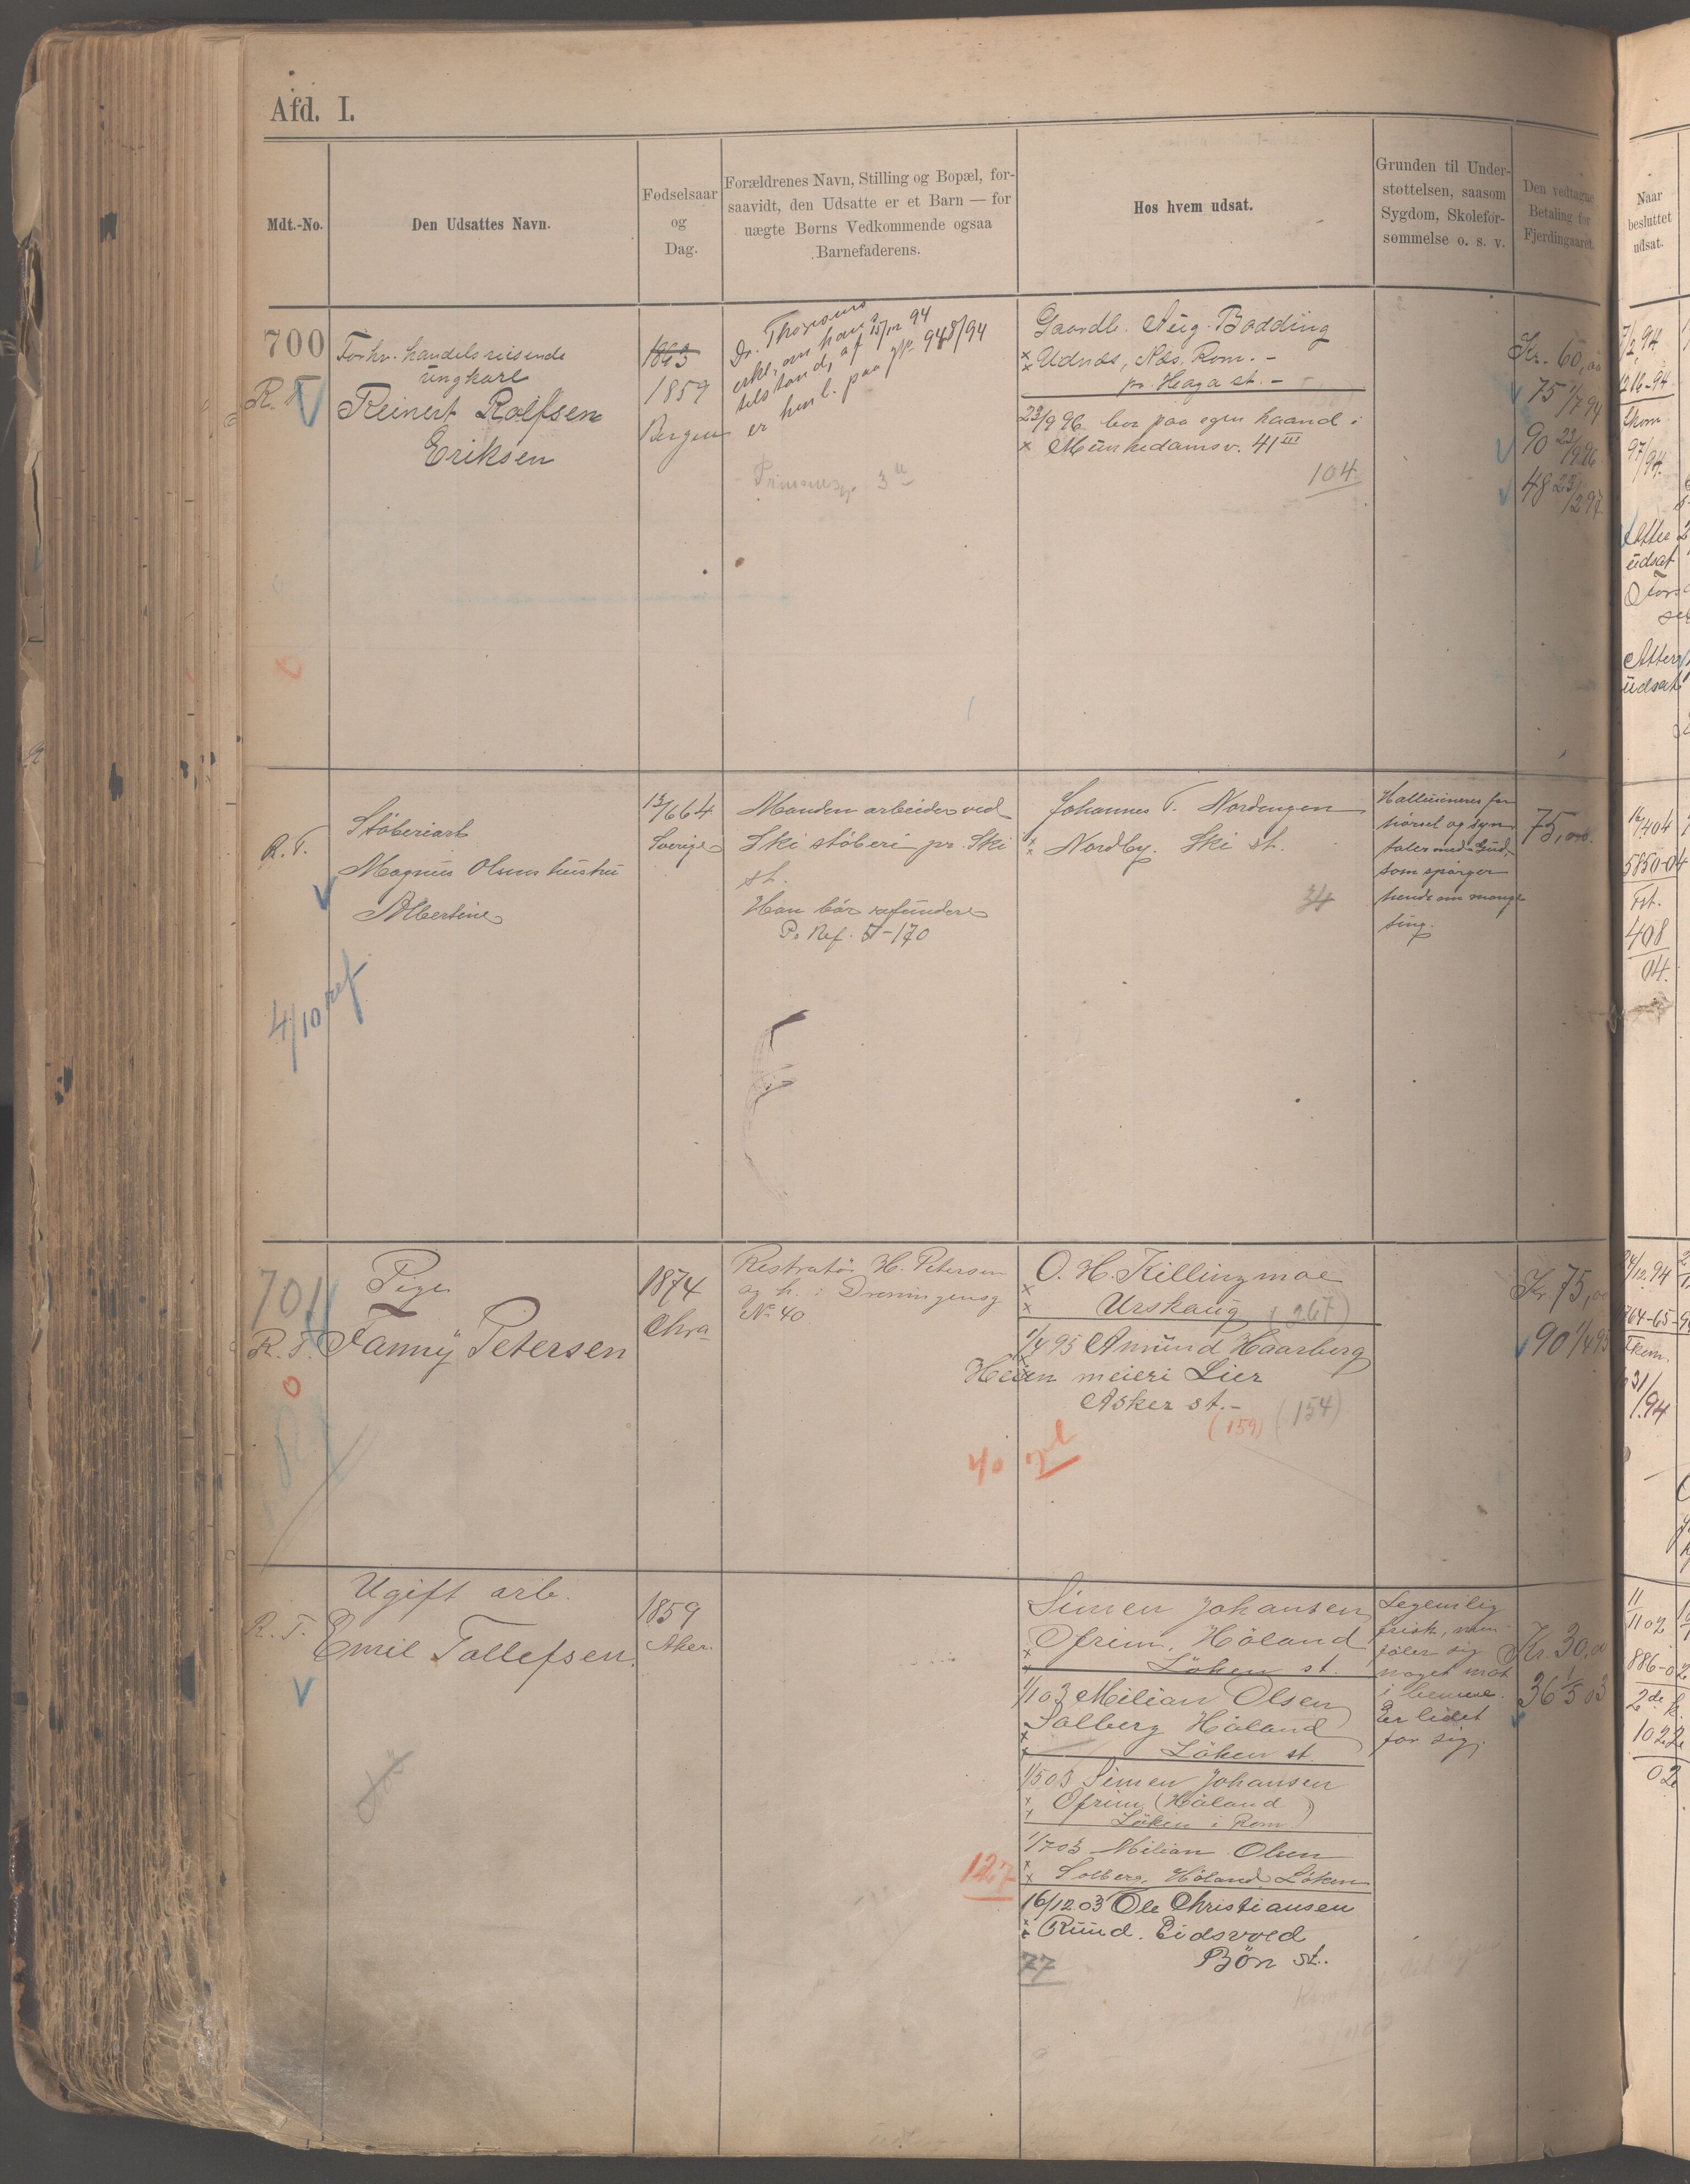 Afd. I.
Mdt.-No.
Den Udsattes Navn.
Fødselsaar
og
Dag.
Forældrenes Navn, Stilling og Bopæl, for-
saavidt, den Udsatte er et Barn — for
uægte Børns Vedkommende ogsaa
Barnefaderens.
Hos hvem udsat.
Grunden til Under-
støttelsen, saasom
Sygdom, Skolefor-
sømmelse o. s. v.
Den vedtagne
Betaling for
Fjerdingaaret.
Naar
besluttet
udsat.
700
R. T.
Forhv. handelsreisende
ungkarl
Reinert Rolfsen
Eriksen
1863
1859
Bergen
Dr. Thoresens
erkl. om hans
tilstand, af 15/12 94
er henl. paa 948/94
Gaardb. Aug. Bodding
Udnæs, Næs, Rom. -
pr. Haga st. -
23/9 96 bor paa egen haand i
Munkedamsv. 41 III
104
Kr. 60,00
75 1/7 94
90 23/9 96
48 23/2 97
R. T.
Støberiarb
Magnus Olsens hustru
Albertine
4/10 ref
13/6 64
Sverige
Manden arbeider ved
Ski støberi pr. Ski
st.
Han bør refundere
P. Ref. 7-170
Johannes T. Nordengen
Nordby. Ski st.
34
Hallusineres for
hørsel og syn
taler med Gud,
som spørger
hende om mange
ting.
75,00
16/4 04
5850-04
Fst.
408
04.
701
R. T.
Pige
Fanny Petersen
1874
Chra
Restratør H. Petersen
og h. i Dronningensg
No 40
O. H. Killingmoe
Urskaug (267)
1/4 95 Amund Haarberg
Heien meieri Lier
Asker st. -
(159) (154)
Kr 75,00
90 1/4 95
R. T.
Ugift arb.
Emil Tollefsen.
1859
Aker.
Simen Johansen
Ofrim, Høland
Løken st.
1/1 03 Milian Olsen
Solberg Høland
Løken st.
1/5 03 Simen Johansen
Ofrim (Høland
Løken i Rom)
1/7 03 Milian Olsen
Solberg, Høland, Løken
127
16/12 03 Ole Christiansen
Ruud. Eidsvold
Bøn st.
77
Legemlig
frisk, men
føler sig
noget mat
i benene.
Er lidet
for sig.
Kr. 30,00
36 1/5 03
11
11 02
886-02
2de k.
1022
02